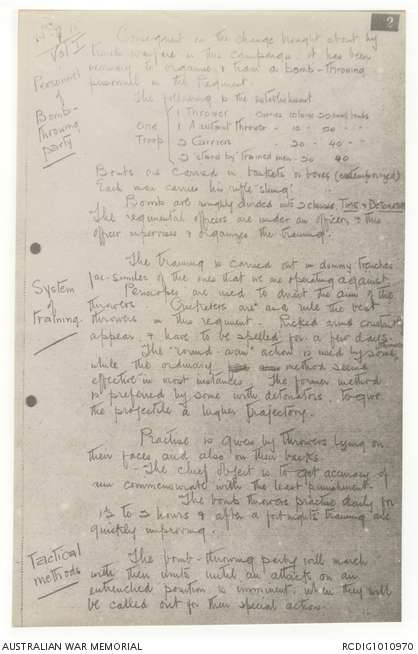 2
Vol I
Consequent on the change brought about by
trench warfare in this campaign, it has been
necessary to organise & train a bomb-throwing
personnel in the Regiment.
Personnel
of
Bomb-
throwing
party
The following is the establishment
1 Thrower carries 10 to 20 bombs
One 1 Assistant thrower - 10 - 20 " "
Troop 2 Carriers 20 - 40 " "
2 stand by trained men. 20 40
Bombs are carried in baskets or boxes (extemporized)
Each man carries his rifle slung.
Bombs are roughly divided into 2 classes, TIME & DETONATOR
The regimental officers are under an officer, & this
officer supervises & organizes the training.
System
of
training.
The training is carried out in dummy trenches
fac-similes of the ones that we are operating against
Periscopes are used to direct the aim of the
throwers. Cricketers are as a rule the best
throwers in this regiment. Ricked arms constantly
appear, & have to be spelled for a few days.
The "round-arm" action is used by some,
while the ordinary method seems
effective in most instances. The former method
is preferred by some with detonators to give
the projectile a higher trajectory.
Practise is given by throwers lying on
their faces and also on their backs.
The chief object is to get accuracy of
aim commensurate with the least punishment.
The bomb throwers practise daily for
1½ to 2 hours & after a fortnights training are
quickly improving.
Tactical
methods
The bomb-throwing party will march
with their units until an attack on an
entrenched position is imminent, when they will
be called out for their special action.
AUSTRALIAN WAR MEMORIAL
RCDIG1010970